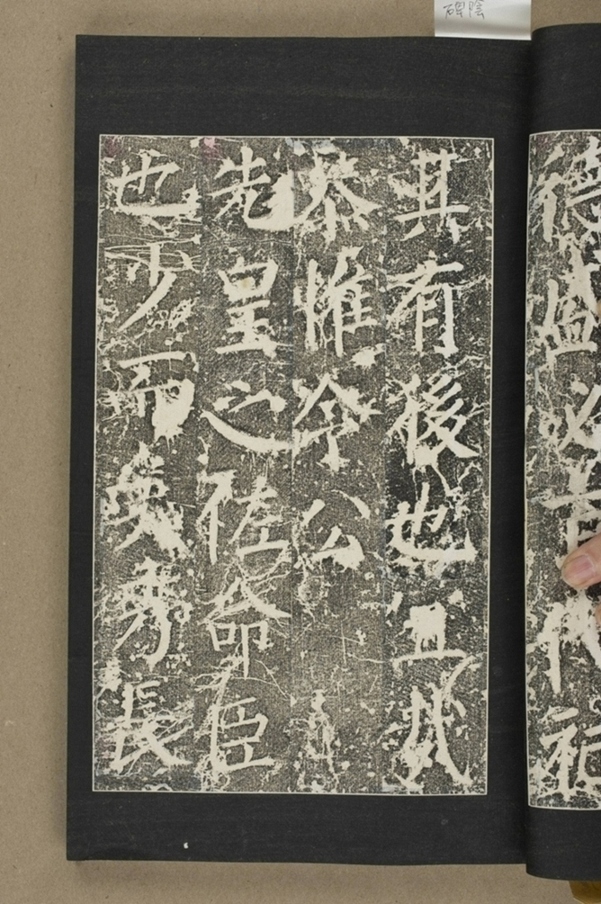 德盛必百代祀
其有後也宜哉
恭惟令公
先皇之佐命臣
也少而失身長
碑陰